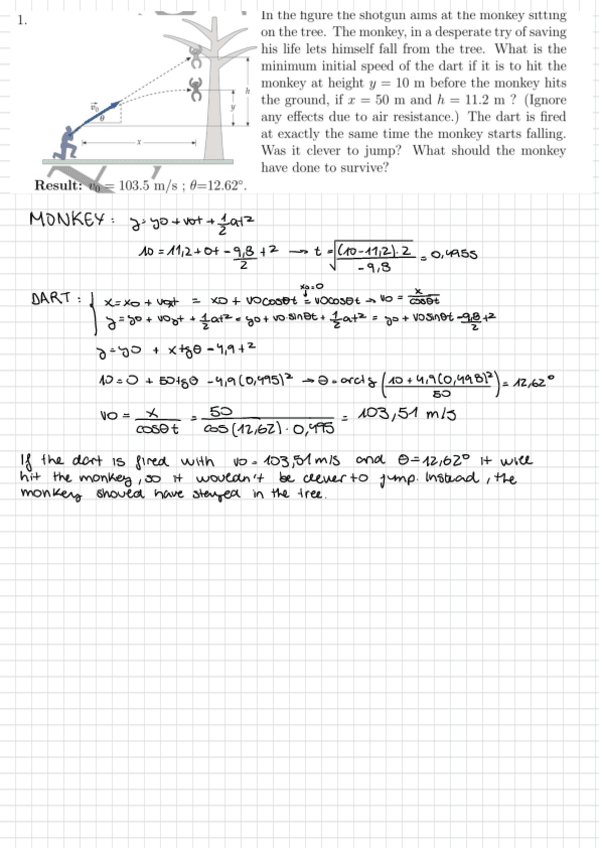 1.
In the figure the shotgun aims at the monkey sitting
on the tree. The monkey, in a desperate try of saving
his life lets himself fall from the tree. What is the
minimum initial speed of the dart if it is to hit the
monkey at height y = 10 m before the monkey hits
the ground, if x = 50 m and h = 11.2 m ? (Ignore
any effects due to air resistance.) The dart is fired
at exactly the same time the monkey starts falling.
Was it clever to jump? What should the monkey
have done to survive?
v₀
θ
x
y
h
Result: v₀ = 103.5 m/s ; θ=12.62°.
MONKEY: y=y0+v0t+½at²
10=11,2+0t-9,8/2 t² → t=√((10-11,2)·2/-9,8)=0,495s
x0=0
DART: { x=x0+v0xt = x0+v0cosθt = v0cosθt → v0 = x/cosθt
y=y0+v0yt+½at²=y0+v0·sinθt+½at² = y0+v0sinθt-9,8/2 t²
y=y0 + xtgθ-4,9t²
10=0 + 50tgθ -4,9(0,495)² → θ=arctg (10+4,9(0,495)²/50)=12,62°
v0 = x/cosθt = 50/cos(12,62)·0,495 = 103,51 m/s
If the dart is fired with v0=103,51m/s and θ=12,62° it will
hit the monkey, so it wouldn't be clever to jump. Instead, the
monkey should have stayed in the tree.